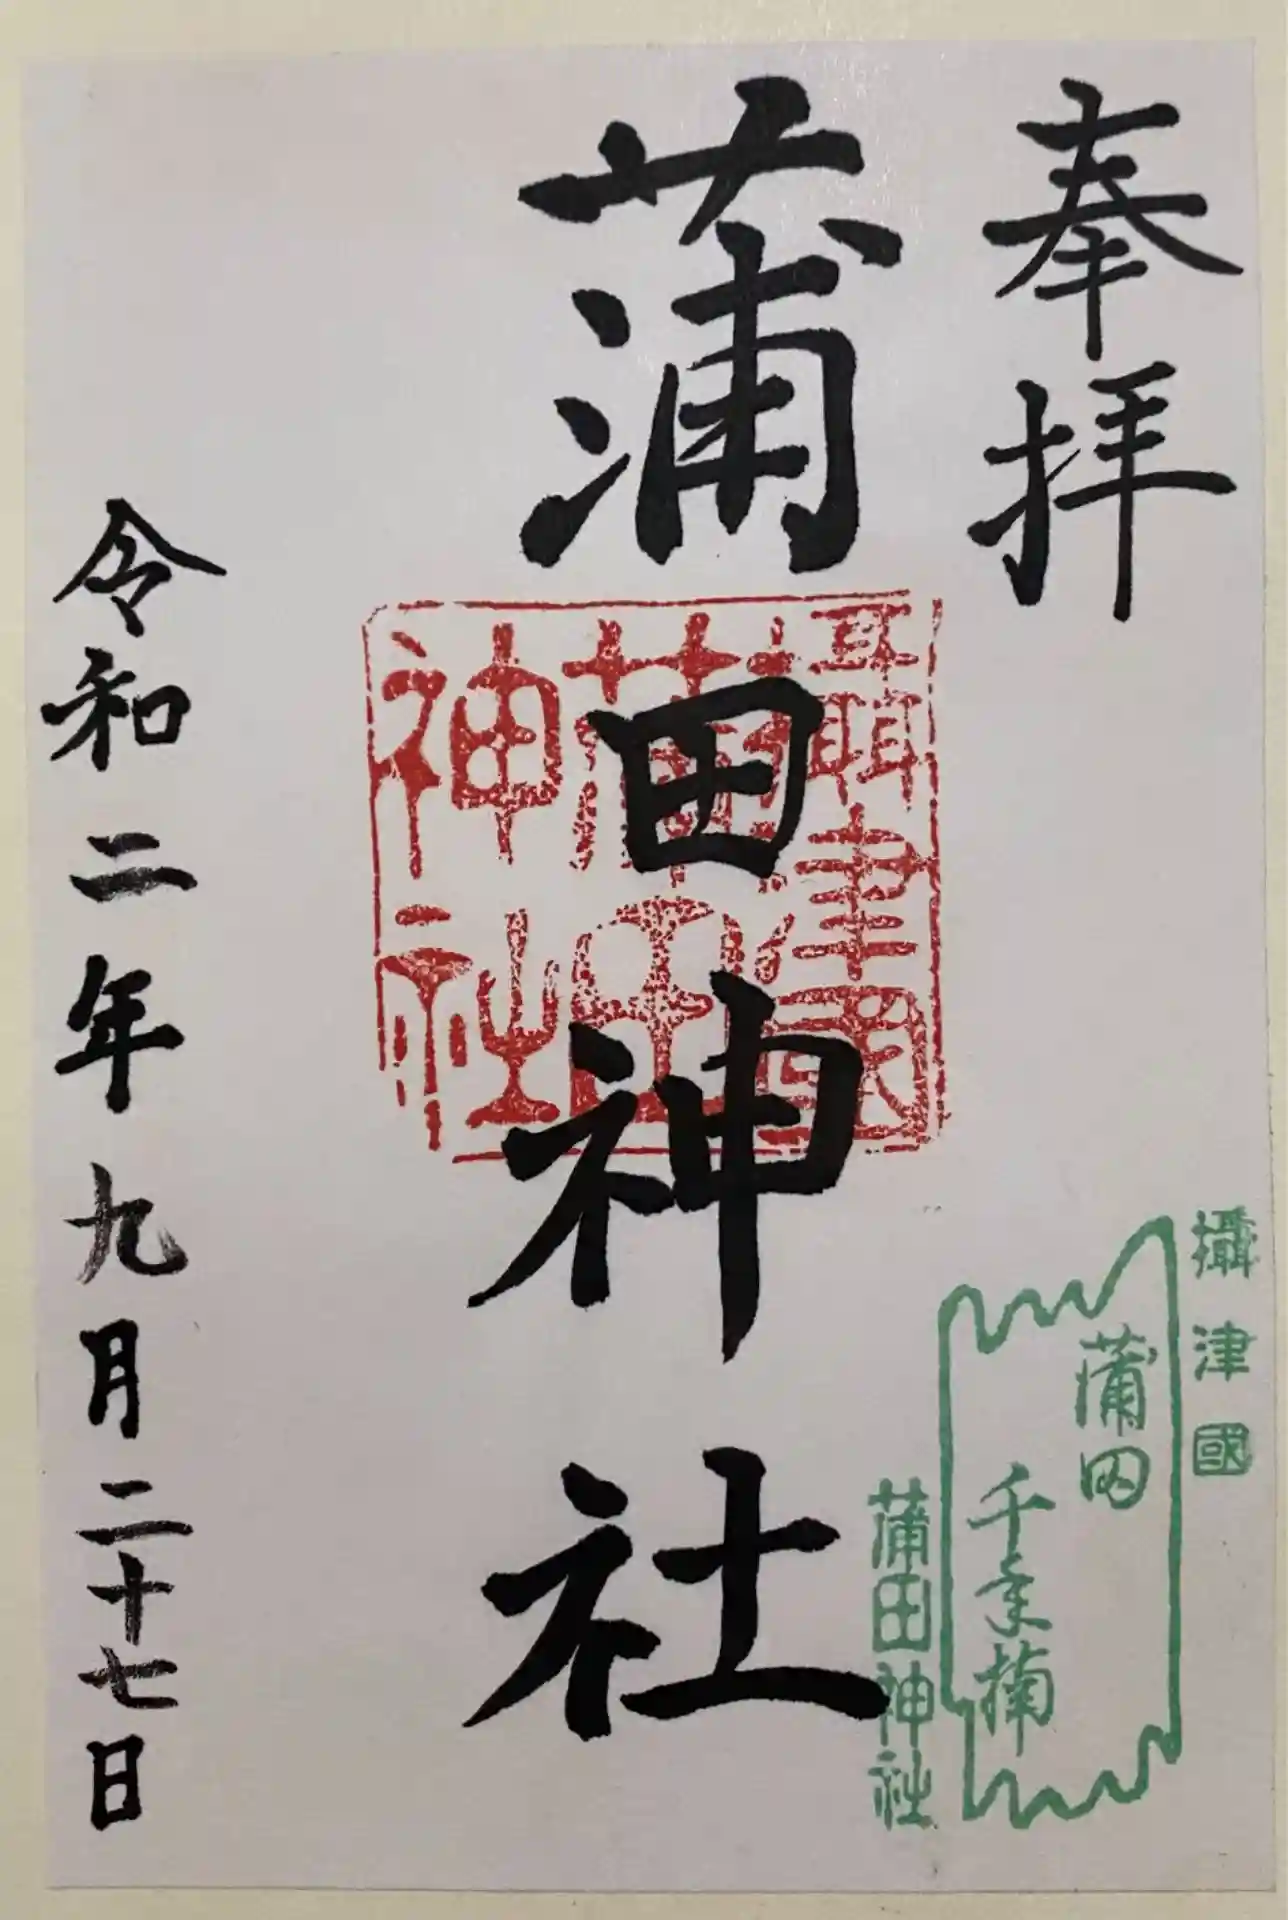 奉拝
攝津國
蒲田
千年楠
蒲田神社
蒲田神社
攝津國
蒲田
神社
令和二年九月二十七日